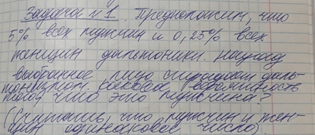 Задача №1. Предположим, что
5% всех мужчин и 0,25% всех
женщин дальтоники. Наугад
выбранное лицо страдает даль-
тонизмом. Какова вероятность
того, что это мужчина?
(Считать, что мужчин и жен-
щин одинаковое число).